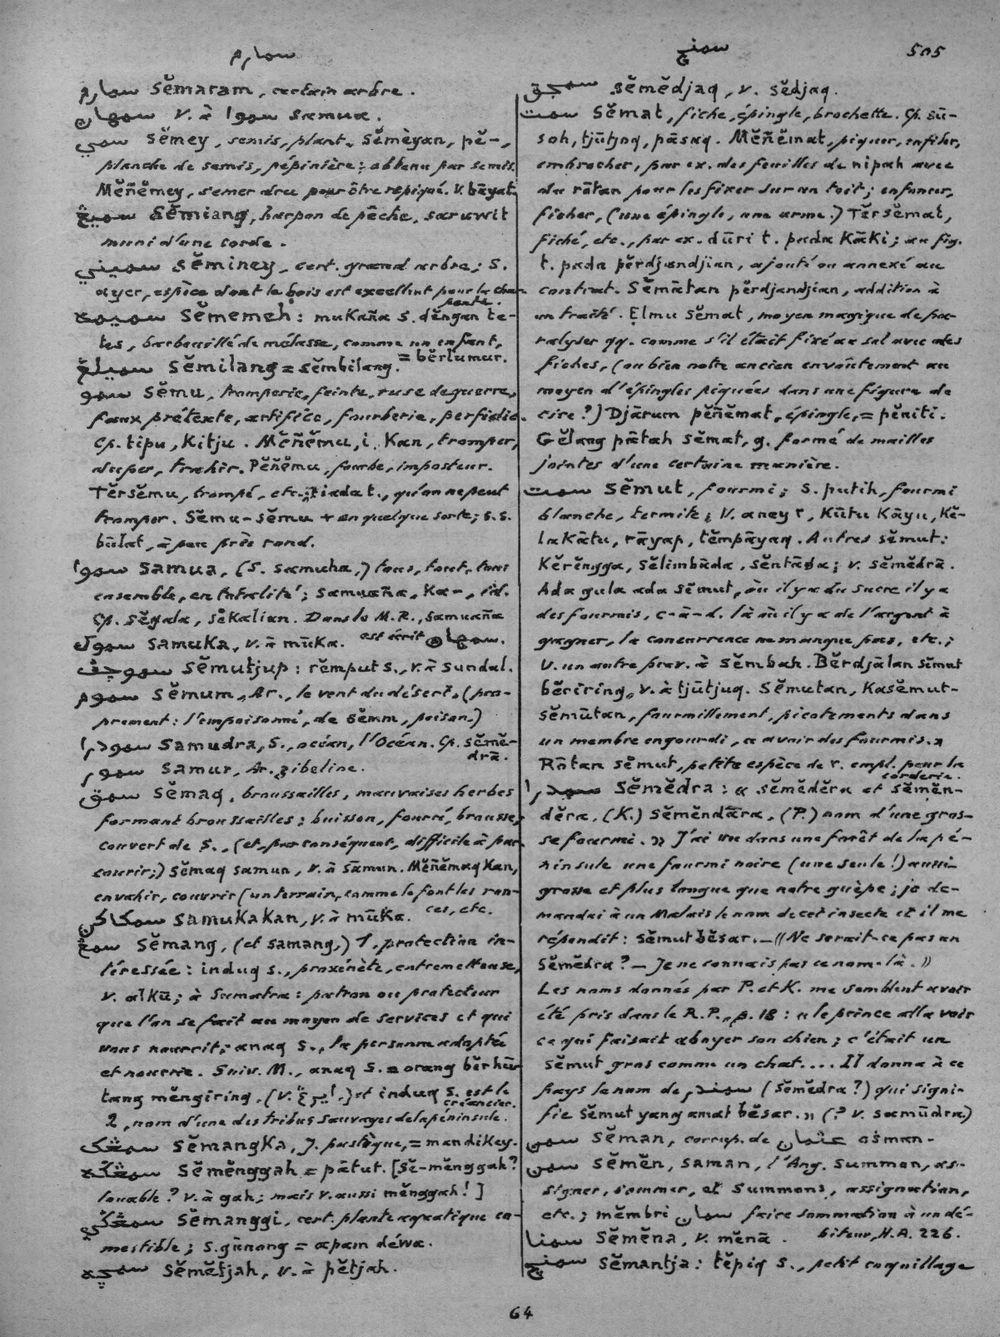 سمارم
سمنچ
505
سمارم Sĕmaram, certain arbre.
سمهان v. à سموا samua.
سمي Sĕmey, semis, plant. Sĕmèyan, pĕ-,
planche de semis, pépinière; abbenu par semis.
Mĕñĕmey, semer dru pour être repiqué. V. bāyat.
سميڠ Sĕmiang, harpon de pêche, saruwit
muni d'une corde.
سميني sĕminey, cert. grand arbre; S.
ayer, espèce dont le bois est excellent pour la char-
pente.
سميمه Sĕmemeh: mukaña s. dĕngan te-
tes, barbouillé de mélasse, comme un enfant,
= bĕrlumur.
سميلڠ Sĕmilang = sĕmbilang.
سمو Sĕmu, tromperie, feinte, ruse de guerre,
faux prétexte, artifice, fourberie, perfidie.
Cp. tipu, Kitju. Mĕñĕmu, i. Kan, tromper,
duper, trahir. Pĕñĕmu, fourbe, imposteur.
Tĕrsĕmu, trompé, etc.; tiada t., qu'on ne peut
tromper. Sĕmu-sĕmu + en quelque sorte; s.s.
būlat, à peu près rond.
سموا samua, (S. samuha,) tous, tout, tous
ensemble, en totalité; samuaña, Ka-, id.
Cp. sĕgala, sĕkalian. Dans le M.R., samuaña
est écrit سمهاڽ.
سموك samuka, v. à mūka.
سموجڤ Sĕmutjup: rĕmput s., v. à sundal.
سموم Sĕmum, Ar., le vent du désert, (pro-
prement: l'empoisonné, de sĕmm, poison.)
سمودرا Samudra, S., océan, l'Océan. Cp. sĕmĕ-
drā.
سمور Samur, Ar. zibeline.
سمق Sĕmaq, broussailles, mauvaises herbes
formant broussailles; buisson, fourré, brousse,
couvert de S., (et, par conséquent, difficile à par-
courir;) Sĕmaq samun, v. à sāmun. Mĕñĕmaq Kan,
envahir, couvrir (un terrain, comme le font les ron-
ces, etc.
سمكاكن samukakan, v. à mūka.
سمڠ Sĕmang, (et samang,) 1, protection in-
téressée: induq s., proxénète, entremetteuse,
v. alkū; à Sumatra: patron ou protecteur
que l'on se fait au moyen de services et qui
vous nourrit; anaq s., la personne adoptée
et nourrie. Suiv. M., anaq s. = orang bĕrhu-
tang mĕngiring, (v. إيرڠ!) et induq s. est le
créancier.
2, nom d'une des tribus sauvages de la péninsule.
سمڠك Sĕmangka, J. pastèque, = mandikey.
سمڠڬه Sĕmĕnggah = pātut. [Sĕ-mĕnggah?
louable? v. à gah; mais v. aussi mĕnggah!]
سمڠڬي Sĕmanggi, cert. plante aquatique co-
mestible; s. gūnang = apam déwa.
سمچه Sĕmĕtjah, v. à pĕtjah.
سمجق sĕmĕdjaq, v. sĕdjaq.
سمت Sĕmat, fiche, épingle, brochette. Cp. sū-
soh, tjūtjoq, pāsaq. Mĕñĕmat, piquer, enfiler,
embrocher, par ex. des feuilles de nipah avec
du rōtan pour les fixer sur un toit; enfoncer,
ficher, (une épingle, une arme.) Tĕrsĕmat,
fiché, etc., par ex. dūri t. pada Kāki; au fig.
t. pada pĕrdjandjian, ajouté ou annexé au
contrat. Sĕmātan pĕrdjandjian, addition à
un traité. Elmu sĕmat, moyen magique de pa-
ralyser qq. comme s'il était fixé au sol avec des
fiches, (ou bien notre ancien envoûtement au
moyen d'épingles piquées dans une figure de
cire?) Djārum pĕñĕmat, épingle, = pĕniti.
Gĕlang pātah sĕmat, g. formé de mailles
jointes d'une certaine manière.
سمت Sĕmut, fourmi; s. putih, fourmi
blanche, termite; V. aney 2, Kūtu Kāyu, Kĕ-
lakātu, rāyap, tĕmpāyaq. Autres sĕmut:
Kĕrĕngga, sĕlimbāda, sĕntāda; v. sĕmĕdrā.
Ada gula ada sĕmut, où il y a du sucre il y a
des fourmis, c-à-d. là où il y a de l'argent à
gagner, la concurrence ne manque pas, etc.;
V. un autre prov. à Sĕmbah. Bĕrdjālan sĕmut
bĕriring, v. à tjūtjuq. Sĕmutan, Kasĕmut-
sĕmūtan, fourmillement, picotements dans
un membre engourdi, «avoir des fourmis.»
Rōtan sĕmut, petite espèce de r. empl. pour la
corderie.
سمدرا Sĕmĕdra: « sĕmĕdĕra et sĕmĕn-
dĕra, (K.) Sĕmĕndāra, (P.) nom d'une gros-
se fourmi.» J'ai vu dans une forêt de la pé-
ninsule une fourmi noire (une seule!) aussi
grosse et plus longue que notre guêpe; je de-
mandai à un Malais le nom de cet insecte et il me
répondit: Sĕmut bĕsar. — «Ne serait-ce pas un
Sĕmĕdra? — Je ne connais pas ce nom-là.»
Les noms donnés par P. et K. me semblent avoir
été pris dans le R.P., p. 18: «le prince alla voir
ce qui faisait aboyer son chien; c'était un
sĕmut gros comme un chat.... Il donna à ce
pays le nom de سمندر (Sĕmĕdra?) qui signi-
fie Sĕmut yang amat bĕsar.» (? v. samūdra)
سمن Sĕman, corrup. de عثمان osman.
سمن Sĕmĕn, saman, l'Ang. Summon, as-
signer, sommer, et Summons, assignation,
etc.; mĕmbri سمان faire sommation à un dé-
biteur, H.A. 226.
سمنا Sĕmĕna, v. mĕnā.
سمنچ Sĕmantja: tĕpiq s., petit coquillage
64